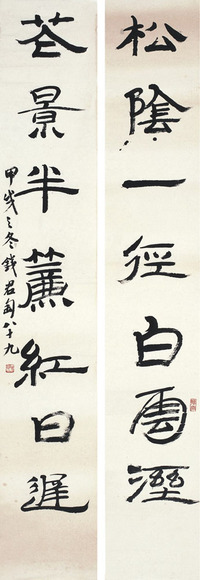 松陰一徑白雲溼
花景半簾紅日遲
甲戌之冬錢君匋八十九